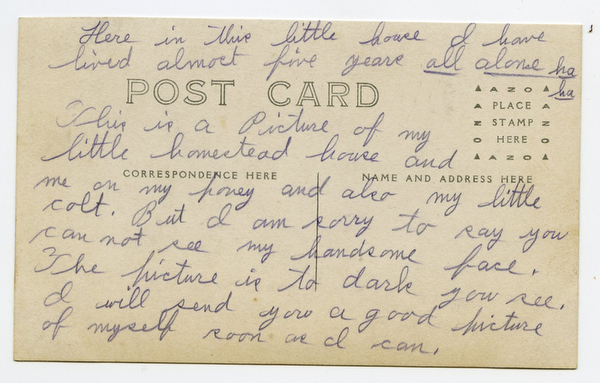 Here in this little house I have
lived almost five years all alone ha
ha
POST CARD
AZO
PLACE
STAMP
HERE
AZO
This is a Picture of my
little homestead house and
CORRESPONDENCE HERE
NAME AND ADDRESS HERE
me on my poney and also my little
colt. But I am sorry to say you
can not see my handsome face.
The picture is to dark you see.
I will send you a good picture
of myself soon as I can.